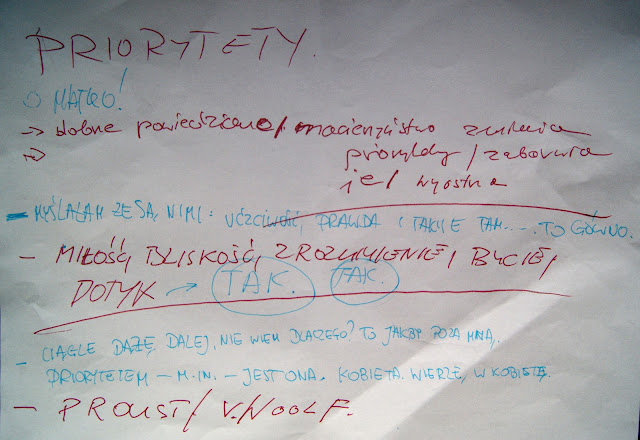 PRIORYTETY.
O MATKO!
→ dobre powiedziane/ macierzyństwo zmienia
→ priorytety / zaburza
je/ wyostrza
- MYŚLAŁAM ŻE SĄ NIMI: UCZCIWOŚĆ, PRAWDA I TAKIE TAM..... TO GÓWNO.
- MIŁOŚĆ, BLISKOŚĆ, ZROZUMIENIE, BYCIE,
DOTYK → TAK. TAK.
- CIĄGLE DĄŻĘ DALEJ, NIE WIEM DLACZEGO? TO JAKBY POZA MNĄ.
PRIORYTETEM – M.IN. – JEST ONA. KOBIETA. WIERZĘ, W KOBIETĘ.
- PROUST/ V.WOOLF.